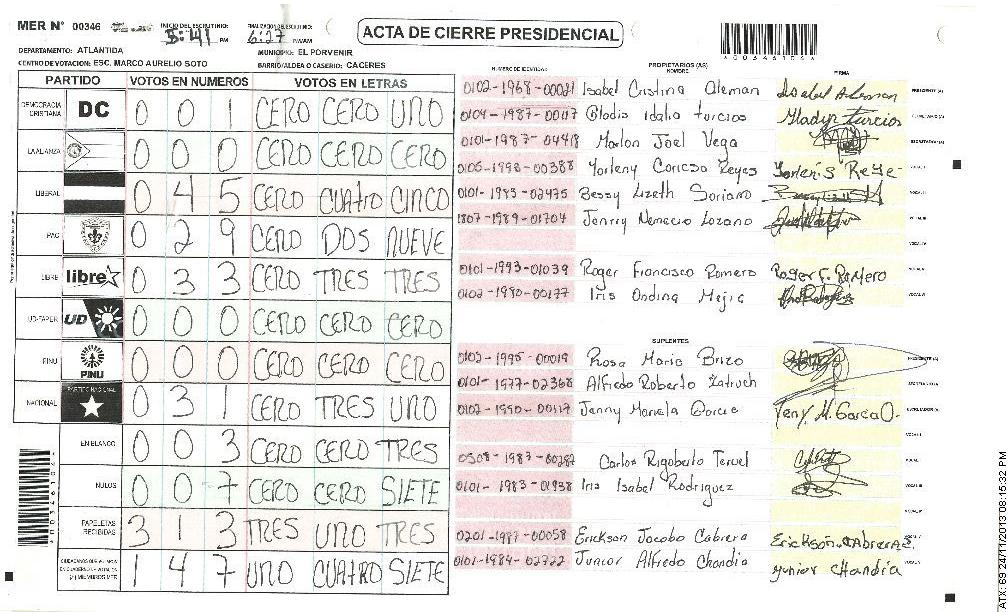 MER N° 00346
INICIO DEL ESCRUTINIO: 5:41 PM
FINALIZACION DEL ESCRUTINIO: 6:27 PM/AM
ACTA DE CIERRE PRESIDENCIAL
*00346104*
DEPARTAMENTO: ATLANTIDA
MUNICIPIO: EL PORVENIR
CENTRO DE VOTACION: ESC. MARCO AURELIO SOTO
BARRIO/ALDEA O CASERIO: CACERES
PARTIDO VOTOS EN NUMEROS VOTOS EN LETRAS
DEMOCRACIA CRISTIANA DC 0 0 1 CERO CERO UNO
LA ALIANZA 0 0 0 CERO CERO CERO
LIBERAL 0 4 5 CERO CUATRO CINCO
PAC 0 2 9 CERO DOS NUEVE
LIBRE libre 0 3 3 CERO TRES TRES
UD-FAPER UD 0 0 0 CERO CERO CERO
PINU PINU 0 0 0 CERO CERO CERO
NACIONAL PARTIDO NACIONAL 0 3 1 CERO TRES UNO
EN BLANCO 0 0 3 CERO CERO TRES
NULOS 0 0 7 CERO CERO SIETE
PAPELETAS RECIBIDAS 3 1 3 TRES UNO TRES
1 4 7 UNO CUATRO SIETE
NUMERO DE IDENTIDAD
PROPIETARIOS (AS)
NOMBRE
FIRMA
0102-1968-00021 Isabel Cristina Aleman Isabel Aleman PRESIDENTE (A)
0104-1987-00117 Gladis Idalia turcios Gladys Turcios SECRETARIO (A)
0101-1987-04418 Marlon Joel Vega ESCRUTADOR (A)
Yorleny Reyes VOCAL I
0101-1985-02475 Bessy Lizeth Soriano VOCAL II
1807-1989-01704 Jenrry Lozano VOCAL III
0101-1993-01039 Roger Francisco Romero Roger F. Romero
0102-1980-00177 Iris Ondina Mejia
SUPLENTES
0102-1995-00019 Rosa Maria Brizo PRESIDENTE (A)
0101-1977-02368 Alfredo Roberto SECRETARIO (A)
0102-1990-00117 Jenny Mariela Garcia Yeny M. Garcia O. ESCRUTADOR (A)
Carlos Rigoberto Teruel
0101-1983-01938 Iris Isabel Rodriguez
0201-1987-00058 Erickson Jacobo Cabrera
0101-1984-02722 Junior Alfredo Chandia Junior Chandia
ATX: 69 24/11/2013 08:15:32 PM